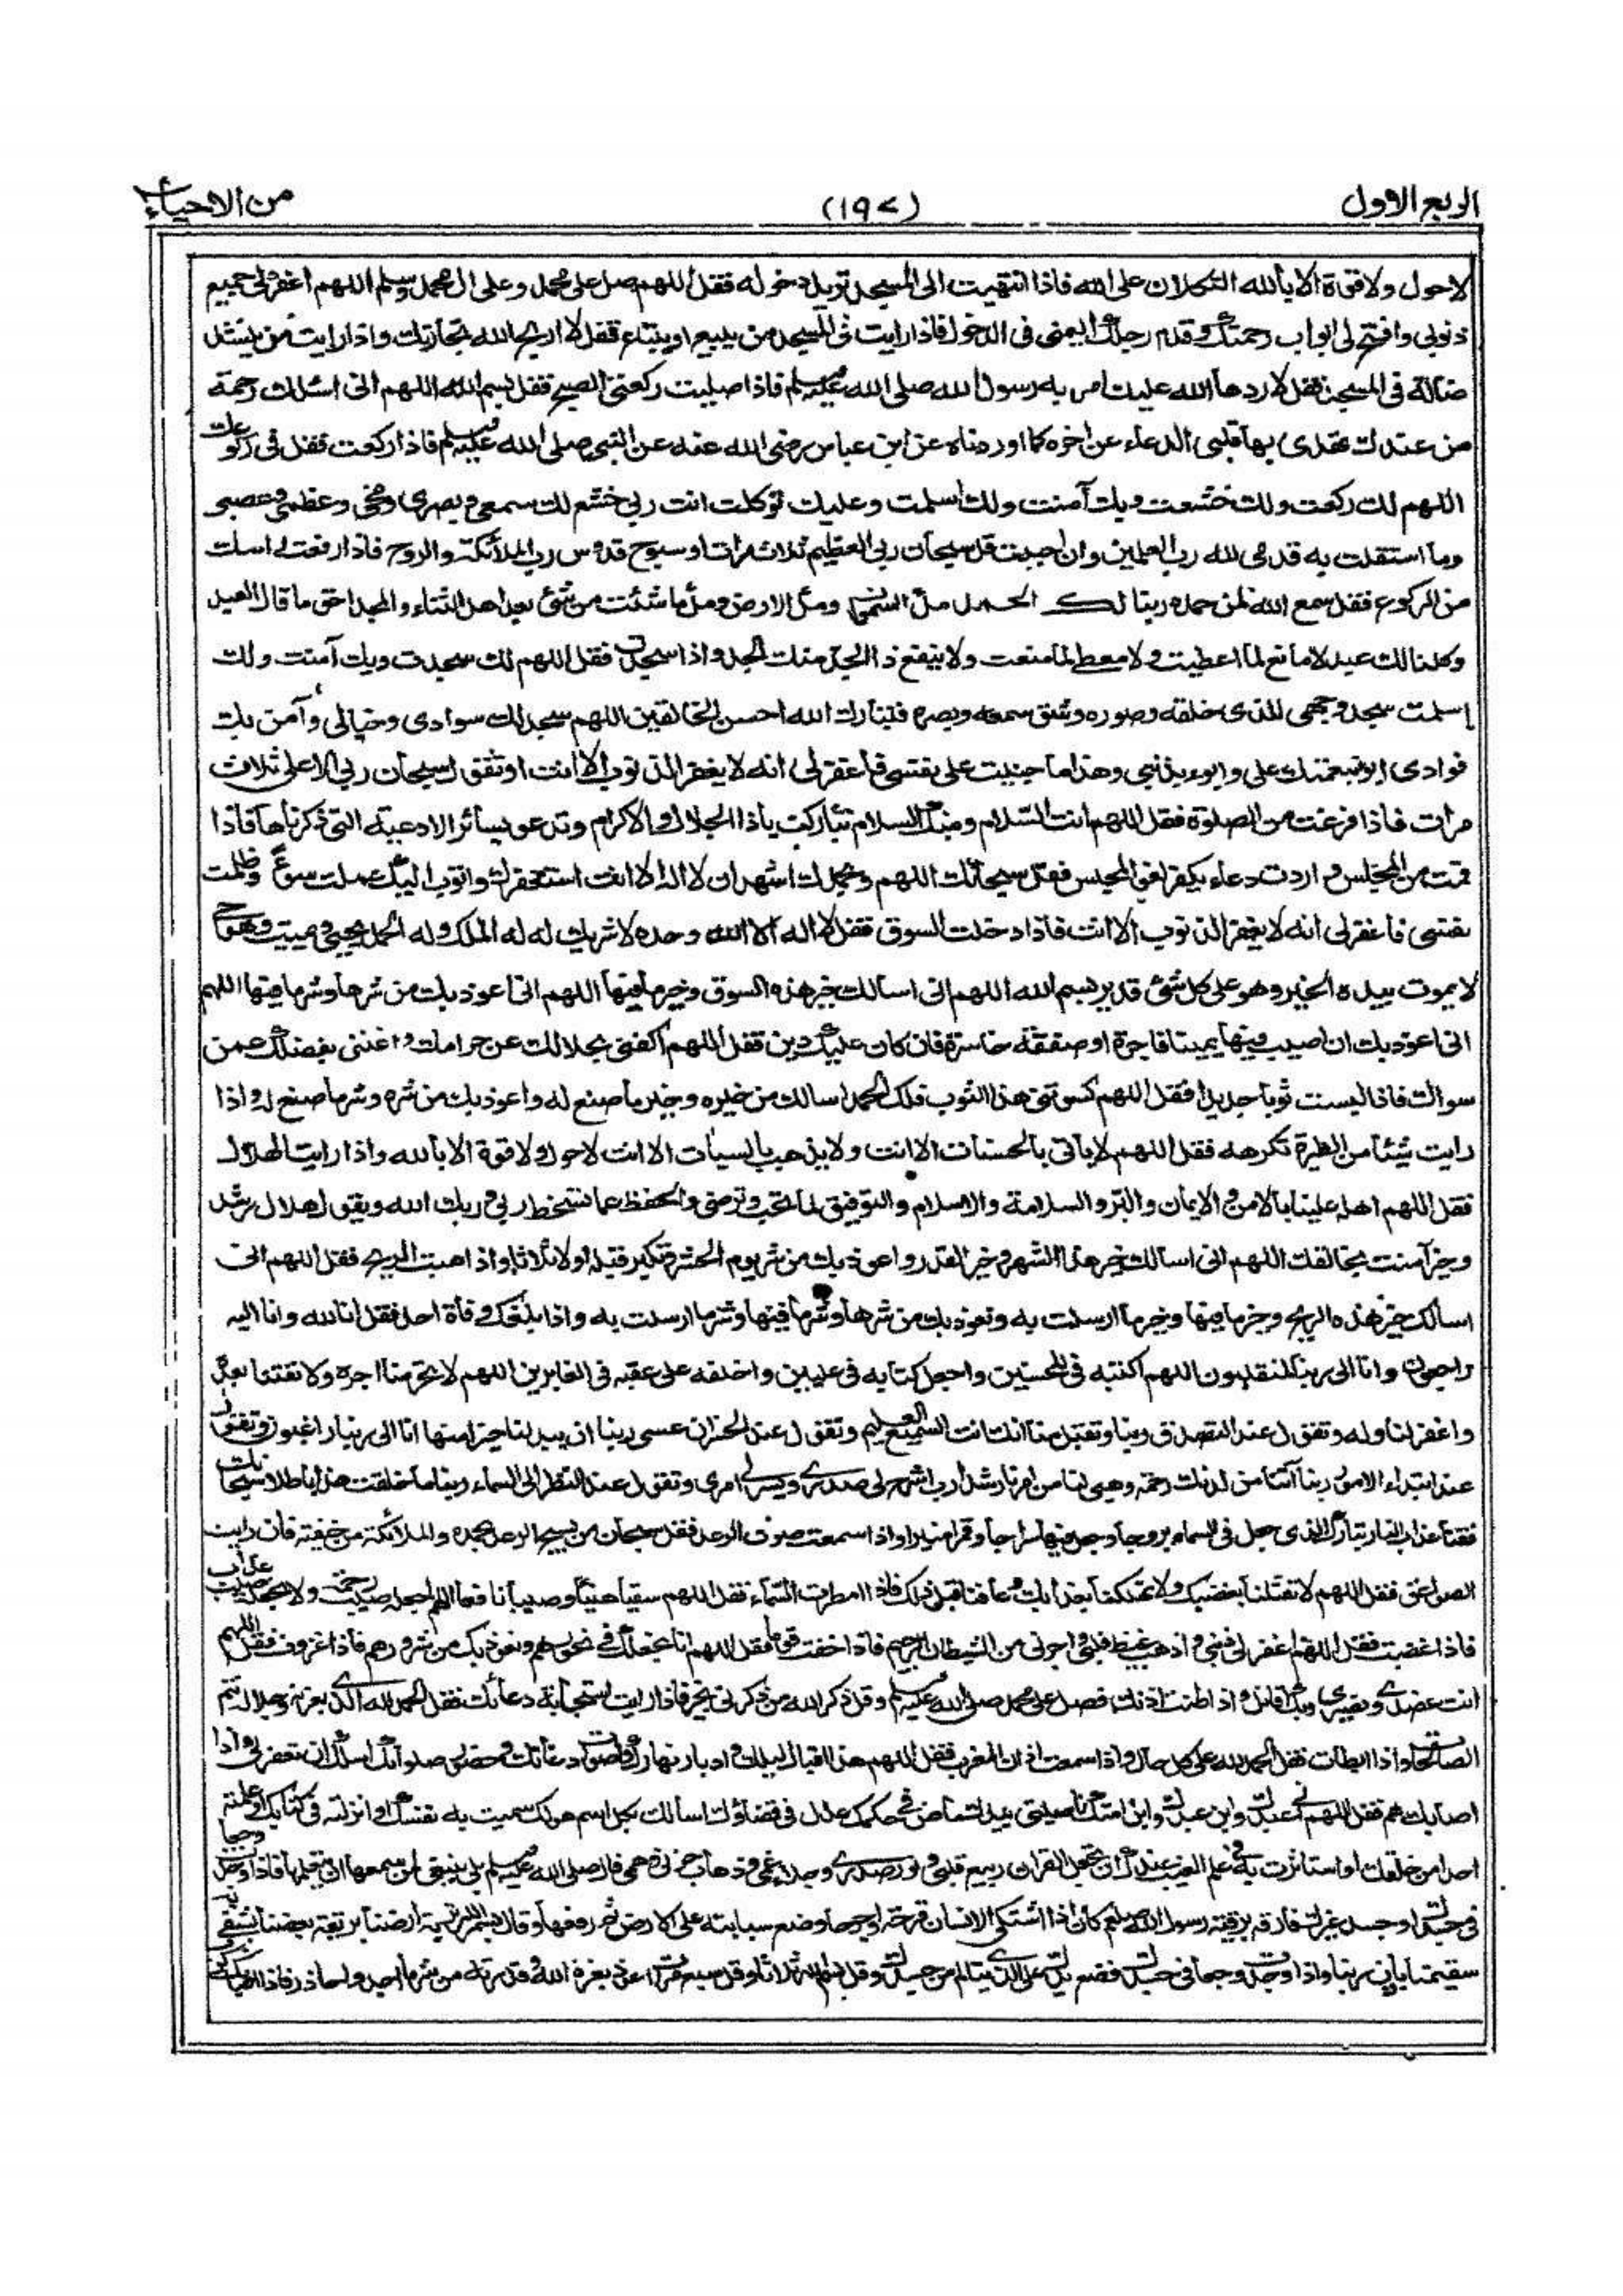 الربع الاول
(١٩٧)
من الاحياء
لاحول ولا قوة الا بالله التكلان على الله فاذا انتهيت الى المسجد تريد دخوله فقل اللهم صل على محمد وعلى ال محمد وسلم اللهم اغفر لى جميع
ذنوبى وافتح لى ابواب رحمتك وقدم رجلك اليمنى فى الدخول فاذا رايت فى المسجد من يبيع او يبتاع فقل لا اربح الله تجارتك واذا رايت من ينشد
ضالة فى المسجد فقل لا ردها الله عليك امر به رسول الله صلى الله عليه وسلم فاذا صليت ركعتى الصبح فقل بسم الله اللهم انى اسئلك رحمة
من عندك تهدى بها قلبى الدعاء عن اخره كما اوردناه عن ابن عباس رضى الله عنه عن النبى صلى الله عليه وسلم فاذا ركعت فقل فى ركوعك
اللهم لك ركعت ولك خشعت وبك آمنت ولك اسلمت وعليك توكلت انت ربى خشع لك سمعى وبصرى ومخى وعظمى وعصبى
وما استقلت به قدمى لله رب العلمين وان احببت قل سبحان ربى العظيم ثلاث مرات او سبوح قدوس رب الملائكة والروح فاذا رفعت راسك
من الركوع فقل سمع الله لمن حمده ربنا لك الحمد ملأ السموات وملأ الارض وملأ ما شئت من شئ بعد اهل الثناء والمجد احق ما قال العبد
وكلنا لك عبد لا مانع لما اعطيت ولا معطى لما منعت ولا ينفع ذا الجد منك الجد واذا سجدت فقل اللهم لك سجدت وبك آمنت ولك
اسلمت سجد وجهى للذى خلقه وصوره وشق سمعه وبصره فتبارك الله احسن الخالقين اللهم سجد لك سوادى وخيالى وآمن بك
فوادى ابوء بنعمتك على وابوء بذنبى وهذا ما جنيت على نفسى فاغفر لى انه لا يغفر الذنوب الا انت او تقول سبحان ربى الاعلى ثلاث
مرات فاذا فرغت من الصلوة فقل اللهم انت السلام ومنك السلام تباركت ياذا الجلال والاكرام وتدعو بسائر الادعية التى ذكرناها فاذا
قمت من المجلس واردت دعاء يكفر لغو المجلس فقل سبحانك اللهم وبحمدك اشهد ان لا اله الا انت استغفرك واتوب اليك عملت سوءً وظلمت
نفسى فاغفر لى انه لا يغفر الذنوب الا انت فاذا دخلت السوق فقل لا اله الا الله وحده لا شريك له له الملك وله الحمد يحيى ويميت وهو حى
لا يموت بيده الخير وهو على كل شئ قدير بسم الله اللهم انى اسالك خير هذه السوق وخير ما فيها اللهم انى اعوذ بك من شرها وشر ما فيها اللهم
انى اعوذ بك ان اصيب فيها يمينا فاجرة او صفقة خاسرة فان كان عليك دين فقل اللهم اكفنى بحلالك عن حرامك واغننى بفضلك عمن
سواك فاذا لبست ثوبا جديدا فقل اللهم كسوتنى هذا الثوب فلك الحمد اسالك من خيره وخير ما صنع له واعوذ بك من شره وشر ما صنع له واذا
رايت شيئا من الطيرة تكرهه فقل اللهم لا ياتى بالحسنات الا انت ولا يذهب بالسيات الا انت لا حول ولا قوة الا بالله واذا رايت الهلال
فقل اللهم اهله علينا بالامن والايمان والبر والسلامة والاسلام والتوفيق لما تحب وترضى والحفظ عما تسخط ربى وربك الله ويقول هلال رشد
وخير آمنت بخالقك اللهم انى اسالك خير هذا الشهر وخير القدر واعوذ بك من شر يوم الحشر وتكبر قبله اولا ثلاثا واذا هبت الريح فقل اللهم انى
اسالك خير هذه الريح وخير ما فيها وخير ما ارسلت به ونعوذ بك من شرها وشر ما فيها وشر ما ارسلت به واذا بلغك وفاة احد فقل انا لله وانا اليه
راجعون وانا الى ربنا لمنقلبون اللهم اكتبه فى المحسنين واجعل كتابه فى عليين واخلفه على عقبه فى الغابرين اللهم لا تحرمنا اجره ولا تفتنا بعده
واغفر لنا وله وتقول عند التصدق ربنا وتقبل منا انك انت السميع العليم وتقول عند الخسران عسى ربنا ان يبدلنا خيرا منها انا الى ربنا راغبون وتقول
عند ابتداء الامور ربنا آتنا من لدنك رحمة وهيئ لنا من امرنا رشدا رب اشرح لى صدرى ويسر لى امرى وتقول عند النظر الى السماء ربنا ما خلقت هذا باطلا سبحانك
فقنا عذاب النار تبارك الذى جعل فى السماء بروجا وجعل فيها سراجا وقمرا منيرا واذا سمعت صوت الرعد فقل سبحان من يسبح الرعد بحمده والملائكة من خيفته فان رايت
الصواعق فقل اللهم لا تقتلنا بغضبك ولا تهلكنا بعذابك وعافنا قبل ذلك فاذا امطرت السماء فقل اللهم سقيا هنيئا وصيبا نافعا اللهم اجعله صيب رحمة ولا تجعله صيب عذاب
فاذا غضبت فقل اللهم اغفر لى ذنبى واذهب غيظ قلبى واجرنى من الشيطان الرجيم فاذا خفت قوما فقل اللهم انا نجعلك فى نحورهم ونعوذ بك من شرورهم فاذا غزوت فقل اللهم
انت عضدى ونصيرى وبك اقاتل واذا طنت اذنك فصل على محمد صلى الله عليه وسلم وقل ذكر الله من ذكرنى بخير فاذا رايت استجابة دعائك فقل الحمد لله الذى بعزته وجلاله تتم
الصالحات واذا ابطات فقل الحمد لله على كل حال واذا سمعت اذان المغرب فقل اللهم هذا اقبال ليلك وادبار نهارك واصوات دعاتك وحضور صلواتك اسئلك ان تغفر لى واذا
اصابك هم فقل اللهم انى عبدك وابن عبدك وابن امتك ناصيتى بيدك ماض فى حكمك عدل فى قضاؤك اسالك بكل اسم هو لك سميت به نفسك او انزلته فى كتابك او علمته
احدا من خلقك او استاثرت به فى علم الغيب عندك ان تجعل القران ربيع قلبى ونور صدرى وجلاء غمى وذهاب حزنى وهمى قال صلى الله عليه وسلم بلى ينبغى لمن سمعها ان يتعلمها فاذا وجدت وجعا
فى جسدك او جسد غيرك فارقه برقية رسول الله صلعم كان اذا اشتكى الانسان قرحة او جرحا وضع سبابته على الارض ثم رفعها وقال بسم الله تربة ارضنا بريقة بعضنا يشفى به
سقيمنا باذن ربنا واذا وجدت وجعا فى جسدك فضع يدك على الذى يتالم من جسدك وقل بسم الله ثلاثا وقل سبع مرات اعوذ بعزة الله وقدرته من شر ما اجد واحاذر فاذا اصابك